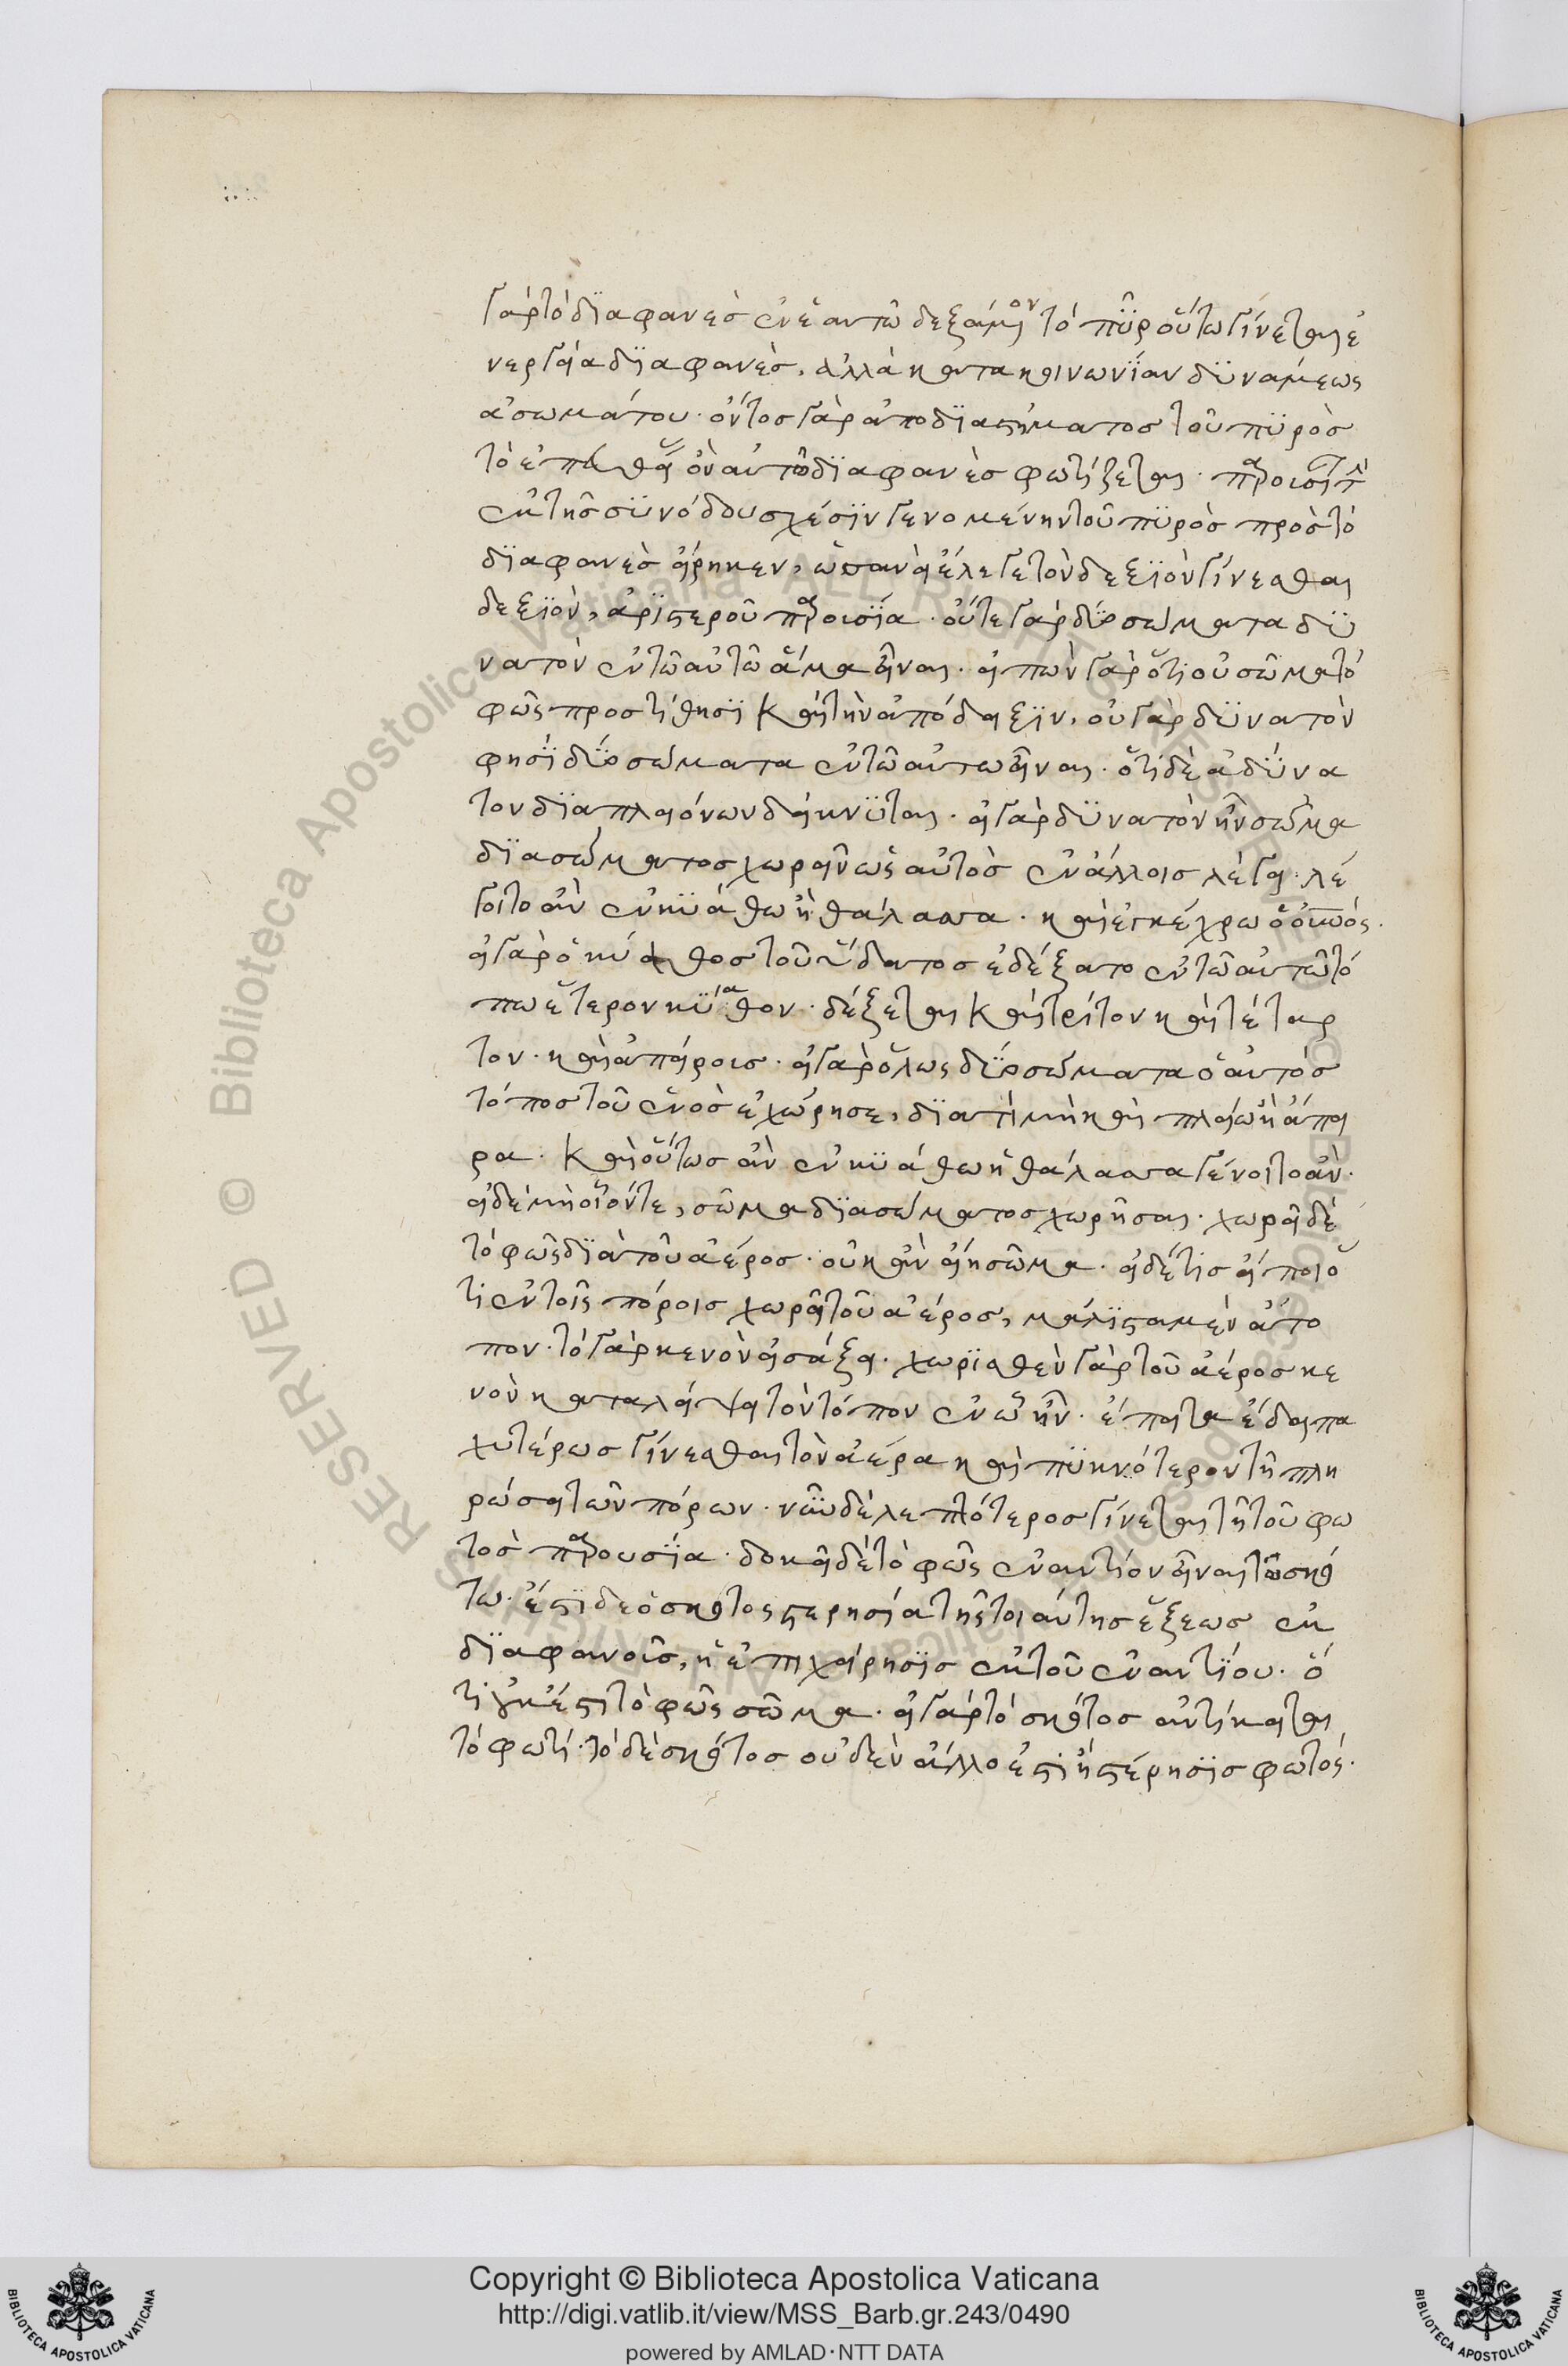 γὰρ τὸ διαφανὲς ἐν ἑαυτῶ δεξάμενον τὸ πῦρ οὕτω γίνεται ἐ
νεργεία διαφανὲς, ἀλλὰ κατα κοινωνίαν δυνάμεως
ἀσωμάτου· ὄντος γὰρ ἀπο διαστήματος τοῦ πυρὸς
τὸ διαφανὲς φωτίζεται·
ἐκ τῆς συνόδου σχέσιν γενομένην τοῦ πυρὸς πρὸς τὸ
διαφανὲς εἴρηκεν, ὡσπανεὶ ἔλεγε τὸν δεξιὸν γίνεσθαι
δεξιὸν, ἀριστεροῦ παρουσία· οὔτε γὰρ δύο σώματα δυ
νατὸν ἐν τῶ αὐτῶ ἅμα εἶναι· εἰπὼν γὰρ ὅτι οὐ σῶμα τὸ
φῶς προστίθησι καὶ τὴν ἀπόδειξιν, οὐ γὰρ δυνατὸν
φησὶ δύο σώματα ἐν τῶ αυτω εἶναι· ὅτι δὲ ἀδύνα
τον δϊα πλειόνων δείκνυται· εἰ γὰρ δυνατὸν ἦν σῶμα
δϊα σώματος χωρεῖν ὡς αὐτὸς ἐν ἄλλοις λέγει· λέ
γοιτο ἂν ἐν κυάθω ἡ θάλασσα· καὶ ἐγκέχρω ὁ οὐνος·
εἰ γὰρ ὁ κύαθος τοῦ ὕδατος ἐδέξατο ἐν τῶ αὐτῶ τό
πω ἕτερον κύαθον· δέξεται καὶ τρίτον καὶ τέταρ
τον· καὶ ἀπείροις· εἰ γὰρ ὅλως δύο σώματα ὁ αὐτὸς
τόπος τοῦ ἑνὸς ἐχώρησε, διατί μὴ καὶ πλείω ἢ ἄπει
ρα· καὶ οὕτως ἂν ἐν κυάθω ἡ θάλασσα γένοιτο ἂν·
εἰ δὲ μὴ οἷόντε, σῶμα δϊα σώματος χωρῆσαι· χωρεῖ δὲ
τὸ φῶς διὰ τοῦ ἀέρος· οὐκ ἂν εἴη σῶμα· εἰ δέ τις εἴποι ὅ
τι ἐν τοῖς πόροις χωρεῖ τοῦ ἀέρος, μάλιστα μὲν ἄτο
πον· τὸ γὰρ κενὸν εἰσάξει· χωρισθὲν γὰρ τοῦ ἀέρος κε
νὸν καταλείψει τὸν τόπον ἐν ὧ ἦν· ἔπειτα ἔδει πα
χυτέρως γίνεσθαι τὸν ἀέρα καὶ πυκνότερον τῆ πλη
ρώσει τῶν πόρων· νῦν δὲ λεπτότερος γίνεται τῆ τοῦ φω
τὸς παρουσία· δοκεῖ δὲ τὸ φῶς ἐναντίον εἶναι τῶ σκό
τω· ἔστι δε ὁ σκότος στερησία τῆς τοιαύτης ἕξεως ἐκ
διαφανοῦς, ἡ ἐπιχείρησις ἐκ τοῦ ἐναντίου· ὅ
τι οὐκ ἔστι τὸ φῶς σῶμα· εἰ γὰρ τὸ σκότος ἀντίκειται
τὸ φωτί· τὸ δὲ σκότος οὐδὲν ἄλλο ἐστὶ ἢ στέρησις φωτός·
Copyright © Biblioteca Apostolica Vaticana
http://digi.vatlib.it/view/MSS_Barb.gr.243/0490
powered by AMLAD·NTT DATA